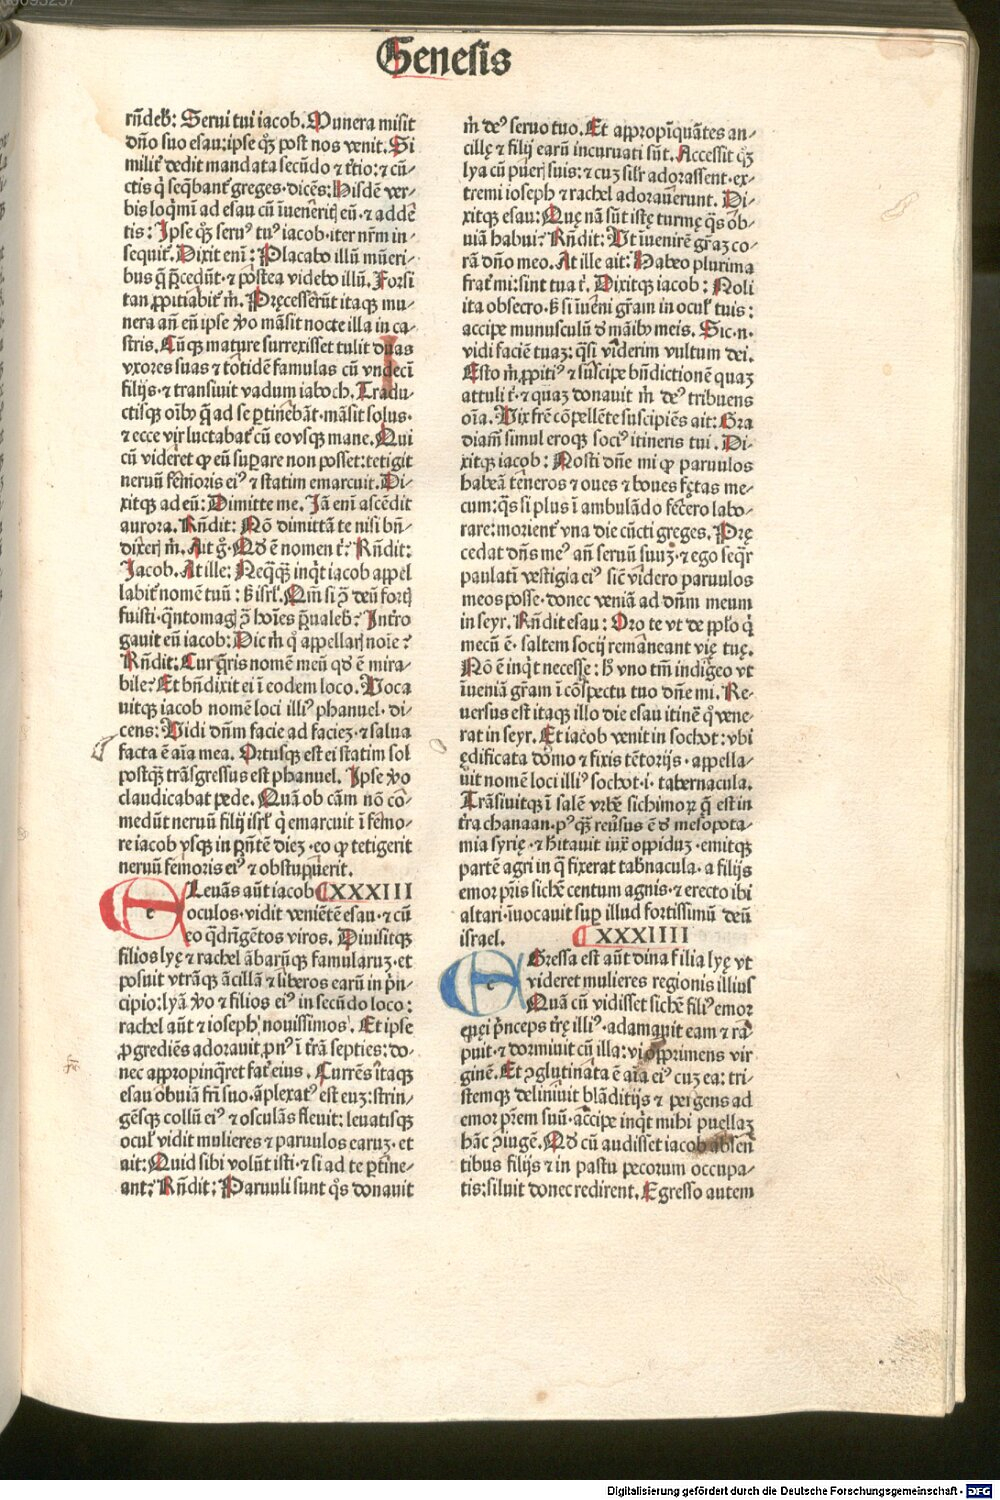 Genesis
rñdeb̃: Serui tui iacob. Munera misit
dño suo esau: ipse qȝ post nos venit. Si
milit̃ dedit mandata secũdo ⁊ t̃tio: ⁊ cũ-
ctis q̇ seq̃bant̃ greges· dicẽs: Hisdẽ ver-
bis loq̃mĩ ad esau cũ ĩuenerit̃ eũ· ⁊ addẽ
tis: Ipse qȝ seruꝰ tuꝰ iacob· iter nr̃m in-
sequit̃. Dixit enĩ: Placabo illũ mũeri-
bus q̃ p̃cedũt· ⁊ postea videbo illũ. Forsi
tan ꝓpitiabit̃ m̃. Pręcesserũt itaqȝ mu-
nera añ eũ ipse ꝟo mãsit nocte illa in ca-
stris. Cũqȝ mature surrexisset tulit duas
vxores suas ⁊ totidẽ famulas cũ vndecĩ
filijs· ⁊ transiuit vadum iaboch. Tradu-
ctisqȝ oĩbꝰ q̃ ad se ꝑtinebãt· mãsit solus·
⁊ ecce vir luctabat̃ cũ eo vsqȝ mane. Qui
cũ videret ꝙ eũ suꝑare non posset: tetigit
neruũ femoris eiꝰ ⁊ statim emarcuit. Di-
xitqȝ ad eũ: Dimitte me. Iã enĩ ascẽdit
aurora. Rñdit: Nõ dimittã te nisi bñ-
dixeris m̃. Ait g̊. Qd̃ ẽ nomen t̃? Rñdit:
Iacob. At ille: Neq̃qȝ̃ inq̇t iacob appel
labit̃ nomẽ tuũ: ß isrl̃. Qm̃ si ↄ̃ deũ fortis
fuisti· q̃ntomagis ↄ̃ hoĩes p̃ualeb̃? Intr̃o
gauit eũ iacob: Dic m̃ q̊ appellaris noĩe?
Rñdit: Cur q̃ris nomẽ meũ qd̃ ẽ mira-
bile? Et bñdixit ei ĩ eodem loco. Voca
uitqȝ iacob nomẽ loci illiꝰ phanuel· di-
cens: Vidi dñm facie ad faciez· ⁊ salua
facta ẽ aĩa mea. Ortusqȝ est ei statim sol
postqȝ̃ trãsgressus est phanuel. Ipse ꝟo
claudicabat pede. Quã ob cãm nõ cõ-
medũt neruũ filij isrl̃ q̇ emarcuit ĩ femo-
re iacob vsqȝ in p̃ntẽ diez· eo ꝙ tetigerit
neruũ femoris eiꝰ ⁊ obstupuerit.
Leuãs aũt iacob XXXIII
oculos· vidit veniẽtẽ esau· ⁊ cũ
eo q̃drĩgẽtos viros. Diuisitqȝ
filios lyę ⁊ rachel ãbarũqȝ famularuȝ· et
posuit vtrãqȝ ãcillã ⁊ liberos earũ in p̃n-
cipio: lyã ꝟo ⁊ filios eiꝰ in secũdo loco:
rachel aũt ⁊ ioseph nouissimos. Et ipse
ꝓgrediẽs adorauit ꝓnꝰ ĩ t̃rã septies: do-
nec appropinq̃ret fat̃ eius. Currẽs ĩtaqȝ
esau obuiã fr̃i suo· ãplexatꝰ est euȝ: strin-
gẽsqȝ collũ eiꝰ ⁊ osculãs fleuit: leuatisqȝ
ocul̃ vidit mulieres ⁊ paruulos earuȝ· et
ait: Quid sibi volũt isti· ⁊ si ad te ꝑtine-
ant? Rñdit: Paruuli sunt q̊s donauit
m̃ deꝰ seruo tuo. Et appropĩquãtes an-
cillę ⁊ filij earũ incuruati sũt. Accessit qȝ
lya cũ pueris suis: ⁊ cuȝ sil̃r adorassent· ex-
tremi ioseph ⁊ rachel adorauerunt. Di-
xitqȝ esau: Quę nã sũt istę turmę q̃s ob-
uiã habui? Rñdit: Ut ĩuenirẽ gr̃aȝ co-
rã dño meo. At ille ait: Habeo plurima
frat̃ mi: sint tua t̃. Dixitqȝ iacob: Noli
ita obsecro· ß si ĩueni gr̃am in ocul̃ tuis:
accipe munusculũ ď mãibꝰ meis. Sic· n·
vidi faciẽ tuaȝ: q̃si viderim vultum dei.
Esto m̃ ꝓpitiꝰ ⁊ suscipe bñdictionẽ quaȝ
attuli t̃· ⁊ quaȝ donauit m̃ deꝰ tribuens
oĩa. Vix fr̃e cõpellẽte suscipiẽs ait: Gra
diam̃ simul eroqȝ sociꝰ itineris tui. Di-
xitqȝ iacob: Nosti dñe mi ꝙ paruulos
habeã teneros ⁊ oues ⁊ boues fętas me-
cum: q̃s si plus ĩ ambulãdo fecero labo-
rare: morient̃ vna die cũcti greges. Prę
cedat dñs meꝰ añ seruũ suuȝ· ⁊ ego seq̃r
paulatĩ vestigia eiꝰ sicut videro paruulos
meos posse· donec veniã ad dñm meum
in seyr. Rñdit esau: Oro te vt de ppl̃o q̇
mecũ ẽ· saltem socij remaneant vię tuę.
Nõ ẽ inq̇t necesse: ß vno tm̃ indigeo vt
ĩueniã gr̃am ĩ cõspectu tuo dñe mi. Re-
uersus est itaqȝ illo die esau itinẽ q̊ vene-
rat in seyr. Et iacob venit in sochot: vbi
ędificata domo ⁊ fixis tẽtorijs· appella-
uit nomẽ loci illiꝰ sochot· i· tabernacula.
Trãsiuitqȝ ĩ salẽ vrbẽ sichimoꝝ q̃ est in
t̃ra chanaan· pꝰqȝ̃ reũsus ẽ ď mesopota-
mia syrię· ⁊ h̃itauit iux̃ oppiduȝ· emitqȝ
partẽ agri in q̃ fixerat tab̃nacula· a filijs
emor pr̃is sichẽ centum agnis· ⁊ erecto ibi
altari· ĩuocauit suꝑ illud fortissimũ deũ
israel. XXXIIII
Gressa est aũt dina filia lyę vt
videret mulieres regionis illius
Quã cũ vidisset sichẽ filiꝰ emor
euęi p̃nceps tr̃ę illiꝰ· adamauit eam ⁊ ra
puit· ⁊ dormiuit cũ illa: vi opprimens vir
ginẽ. Et ↄglutinata ẽ aĩa eiꝰ cuȝ ea: tri-
stemqȝ deliniuit blãditijs ⁊ pergens ad
emor pr̃em suũ· accipe inq̇t mihi puellaȝ
hãc ↄiugẽ. Qd̃ cũ audisset iacob absen
tibus filijs ⁊ in pastu pecorum occupa-
tis: siluit donec redirent. Egresso autem
Digitalisierung gefördert durch die Deutsche Forschungsgemeinschaft - DFG